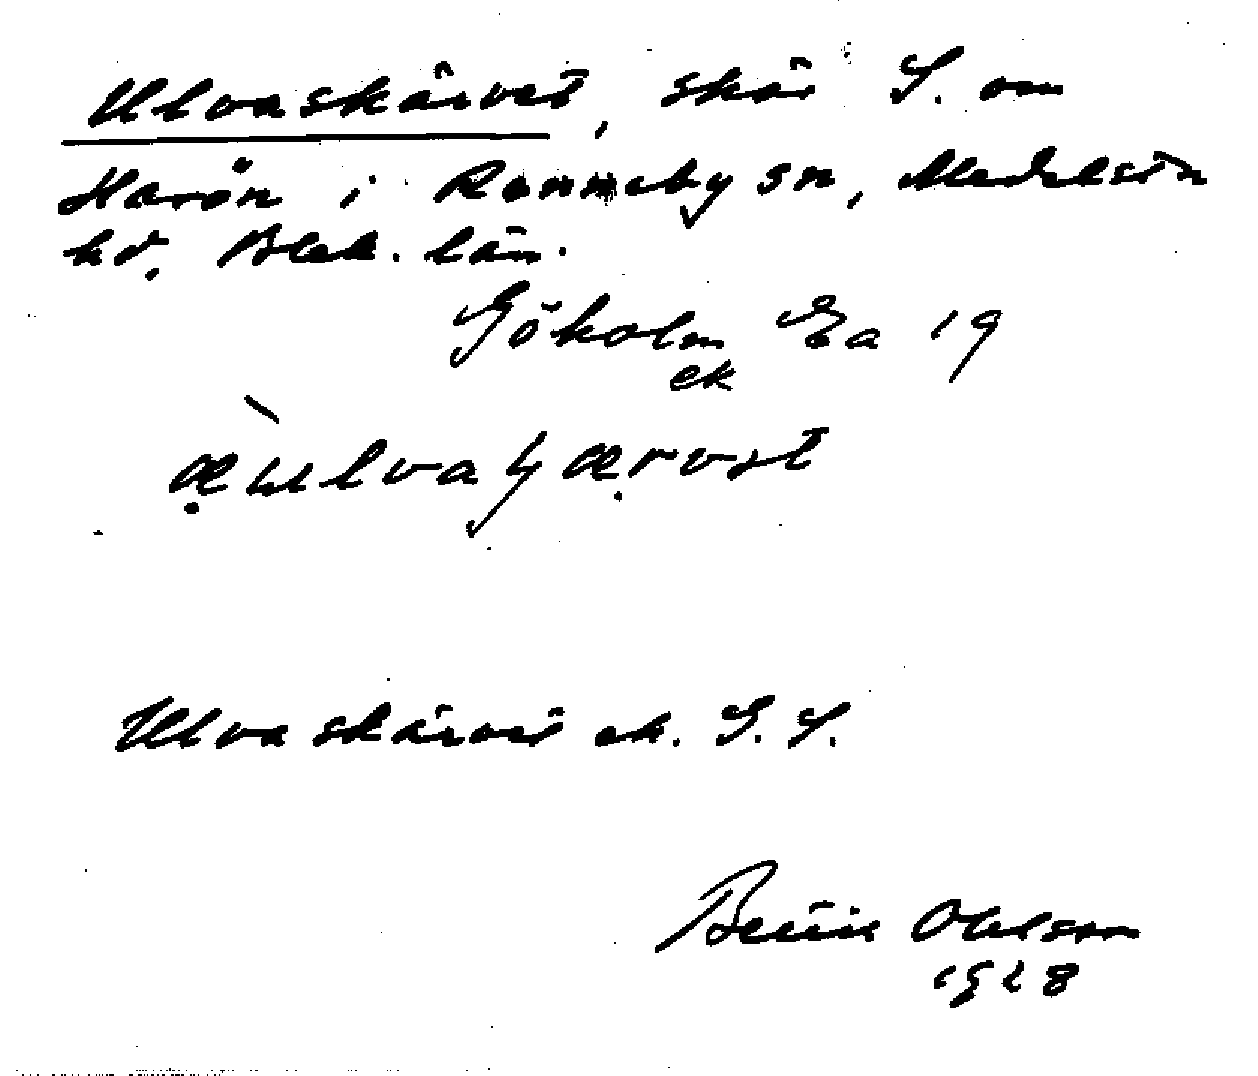 Ulvaskärvet, skär S. om
Harön i Ronneby sn, Medelsta
hd. Blek. län.
Gökalm Ea 19
ek
Ulvaskärvet ek. S. S.
Bertil Ohlson
1928